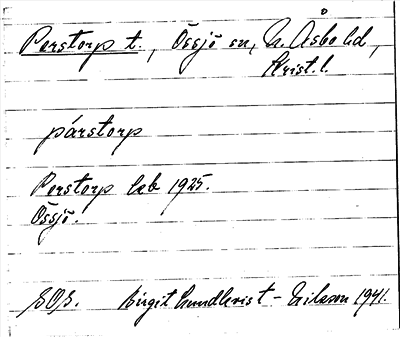 Perstorp t., Össjö sn, N. Åsbo hd,
Krist. l.
párstorp
Perstorp lab 1925.
Össjö.
SOS. Birgit Lundkvist-Nilsson 1941.